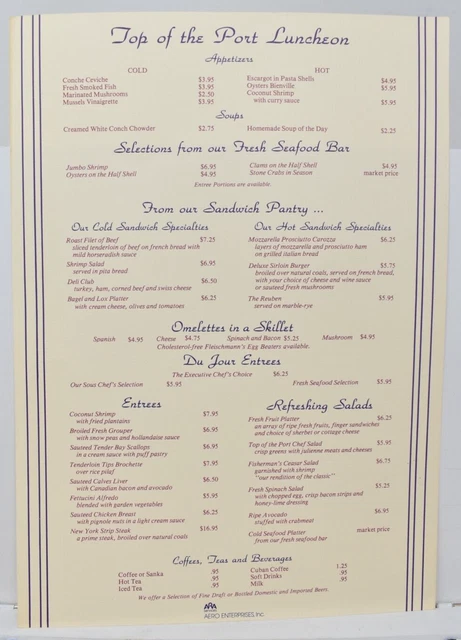 Top of the Port Luncheon
Appetizers
COLD
Conche Ceviche $3.95
Fresh Smoked Fish $3.95
Marinated Mushrooms $2.50
Mussels Vinaigrette $3.95
HOT
Escargot in Pasta Shells $4.95
Oysters Bienville $5.95
Coconut Shrimp
with curry sauce $5.95
Soups
Creamed White Conch Chowder $2.75
Homemade Soup of the Day $2.25
Selections from our Fresh Seafood Bar
Jumbo Shrimp $6.95
Oysters on the Half Shell $4.95
Clams on the Half Shell $4.95
Stone Crabs in Season market price
Entree Portions are available.
From our Sandwich Pantry ...
Our Cold Sandwich Specialties
Roast Filet of Beef $7.25
sliced tenderloin of beef on french bread with
mild horseradish sauce
Shrimp Salad $6.95
served in pita bread
Deli Club $6.50
turkey, ham, corned beef and swiss cheese
Bagel and Lox Platter $6.25
with cream cheese, olives and tomatoes
Our Hot Sandwich Specialties
Mozzarella Prosciutto Carozza $6.25
layers of mozzarella and prosciutto ham
on grilled italian bread
Deluxe Sirloin Burger $5.75
broiled over natural coals, served on french bread,
with your choice of cheese and wine sauce
or sauteed fresh mushrooms
The Reuben $5.95
served on marble-rye
Omelettes in a Skillet
Spanish $4.95 Cheese $4.75 Spinach and Bacon $5.25 Mushroom $4.95
Cholesterol-free Fleischmann's Egg Beaters available.
Du Jour Entrees
The Executive Chef's Choice $6.25
Our Sous Chef's Selection $5.95 Fresh Seafood Selection $5.95
Entrees
Coconut Shrimp $7.95
with fried plantains
Broiled Fresh Grouper $6.95
with snow peas and hollandaise sauce
Sauteed Tender Bay Scallops $6.95
in a cream sauce with puff pastry
Tenderloin Tips Brochette $7.95
over rice pilaf
Sauteed Calves Liver $6.50
with Canadian bacon and avocado
Fettucini Alfredo $5.95
blended with garden vegetables
Sauteed Chicken Breast $6.25
with pignole nuts in a light cream sauce
New York Strip Steak $16.95
a prime steak, broiled over natural coals
Refreshing Salads
Fresh Fruit Platter $6.25
an array of ripe fresh fruits, finger sandwiches
and choice of sherbet or cottage cheese
Top of the Port Chef Salad $5.95
crisp greens with julienne meats and cheeses
Fisherman's Ceasar Salad $6.75
garnished with shrimp
"our rendition of the classic"
Fresh Spinach Salad $5.25
with chopped egg, crisp bacon strips and
honey-lime dressing
Ripe Avocado $6.95
stuffed with crabmeat
Cold Seafood Platter market price
from our fresh seafood bar
Coffees, Teas and Beverages
Coffee or Sanka .95
Hot Tea .95
Iced Tea .95
Cuban Coffee 1.25
Soft Drinks .95
Milk .95
We offer a Selection of Fine Draft or Bottled Domestic and Imported Beers.
ARA
AERO ENTERPRISES, Inc.